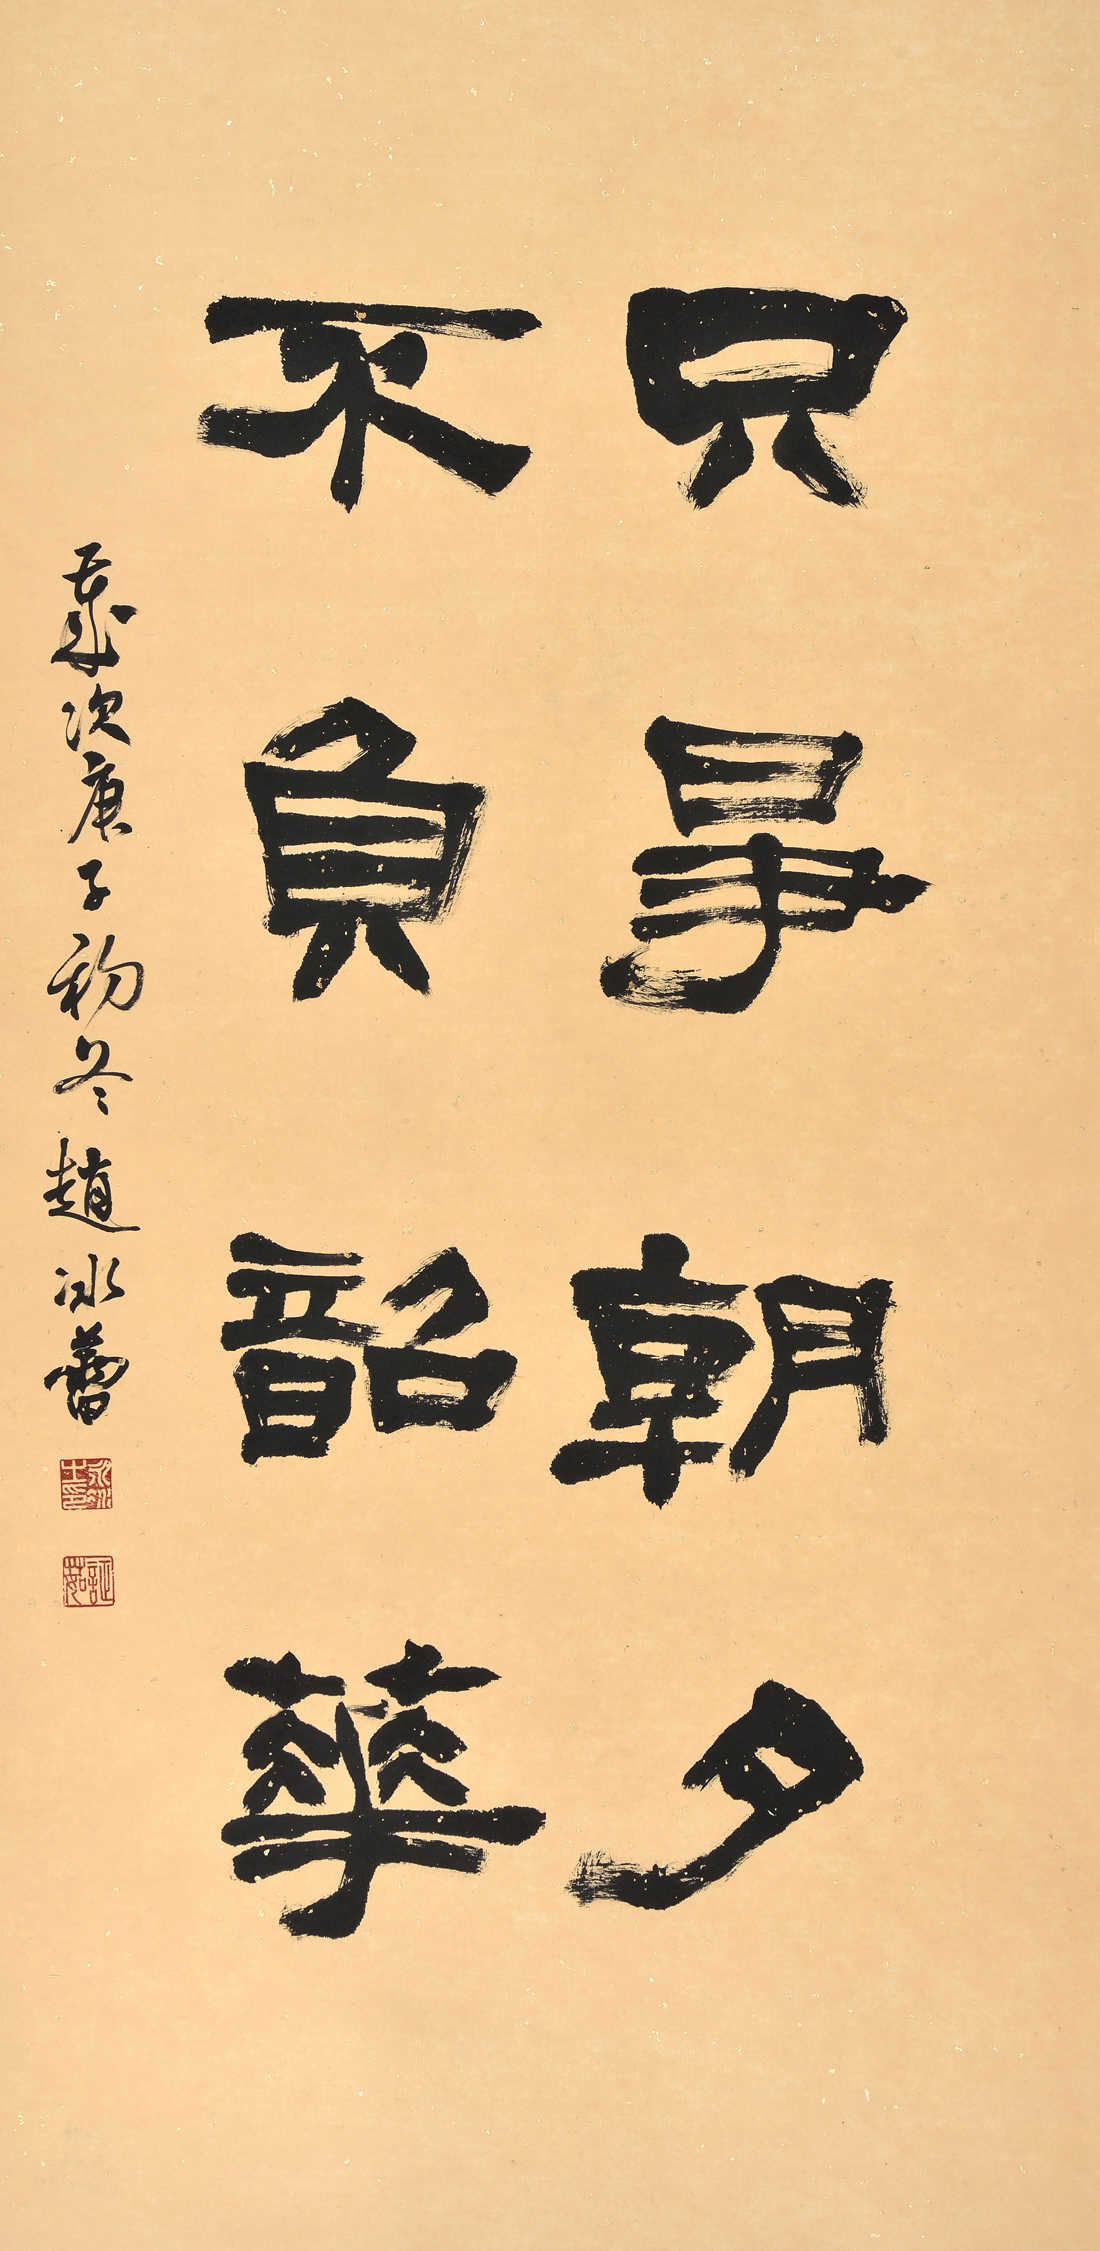 只争朝夕
不負韶華
歲次庚子初冬趙冰蕾